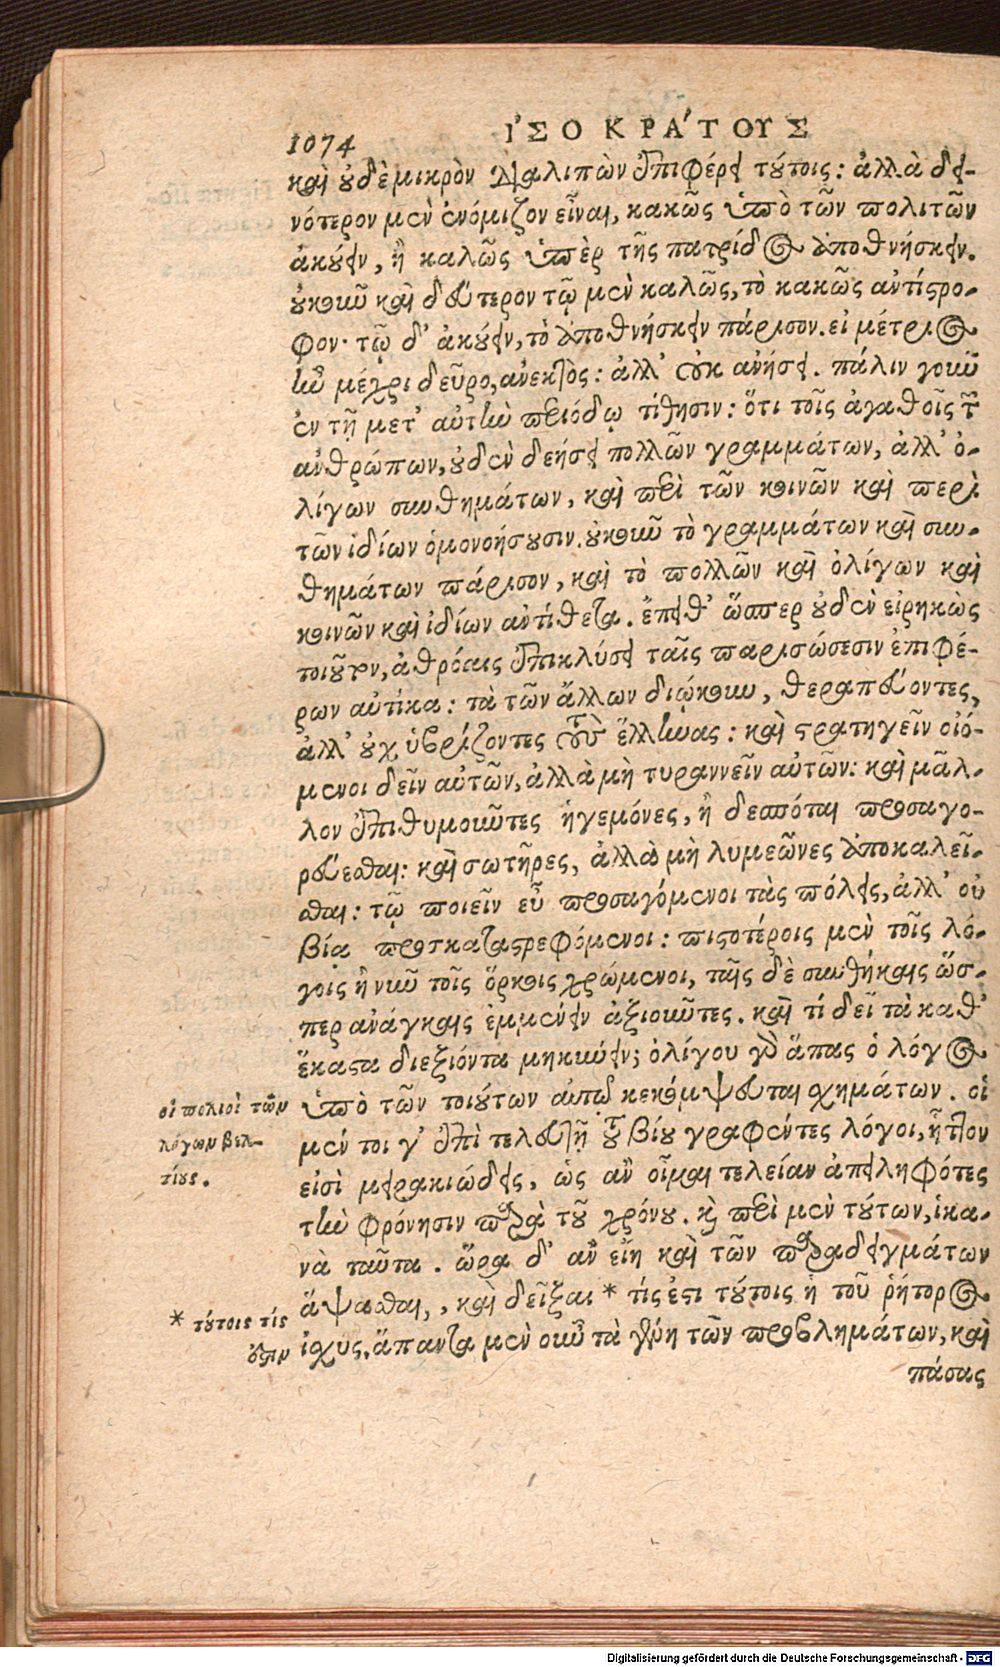 1074
ἸΣΟΚΡΑ´ΤΟΥΣ
καὶ οὐδὲ μικρὸν διαλιπὼν ἐπιφέρει τούτοις: ἀλλὰ δει-
νότερον μὲν ἐνόμιζον εἶναι, κακῶς ὑπὸ τῶν πολιτῶν
ἀκούειν, ἢ καλῶς ὑπὲρ τῆς πατρίδος ἀποθνήσκειν.
οὐκοῦν καὶ δεύτερον τῷ μὲν καλῶς, τὸ κακῶς ἀντίστρο-
φον· τῷ δ' ἀκούειν, τὸ ἀποθνήσκειν πάρισον. εἰ μέτριος
ἦν μέχρι δεῦρο, ἀνεκτὸς: ἀλλ' οὐκ ἀνήσει. πάλιν γοῦν
ἐν τῇ μετ' αὐτὴν περιόδῳ τίθησιν: ὅτι τοῖς ἀγαθοῖς τῶν
ἀνθρώπων, οὐδὲν δεήσει πολλῶν γραμμάτων, ἀλλ' ὀ-
λίγων συνθημάτων, καὶ περὶ τῶν κοινῶν καὶ περὶ
τῶν ἰδίων ὁμονοήσουσιν. οὐκοῦν τὸ γραμμάτων καὶ συν-
θημάτων πάρισον, καὶ τὸ πολλῶν καὶ ὀλίγων καὶ
κοινῶν καὶ ἰδίων ἀντίθετα. ἔπειθ' ὥσπερ οὐδὲν εἰρηκὼς
τοιοῦτον, ἀθρόαις ἐπικλύσει ταῖς παρισώσεσιν ἐπιφέ-
ρων αὐτίκα: τὰ τῶν ἄλλων διῴκουν, θεραπεύοντες,
ἀλλ' οὐχ ὑβρίζοντες τοὺς ἕλληνας: καὶ στρατηγεῖν οἰό-
μενοι δεῖν αὐτῶν, ἀλλὰ μὴ τυραννεῖν αὐτῶν: καὶ μᾶλ-
λον ἐπιθυμοῦντες ἡγεμόνες, ἢ δεσπόται προσαγο-
ρεύεσθαι: καὶ σωτῆρες, ἀλλὰ μὴ λυμεῶνες ἀποκαλεῖ-
σθαι: τῷ ποιεῖν εὖ προσαγόμενοι τὰς πόλεις, ἀλλ' οὐ
βίᾳ προσκαταστρεφόμενοι: πιστοτέροις μὲν τοῖς λό-
γοις ἢ νῦν τοῖς ὅρκοις χρώμενοι, ταῖς δὲ συνθήκαις ὥσ-
περ ἀνάγκαις ἐμμένειν ἀξιοῦντες. καὶ τί δεῖ τὰ καθ'
ἕκαστα διεξιόντα μηκύνειν; ὀλίγου γὰρ ἅπας ὁ λόγος
ὑπὸ τῶν τοιούτων αὐτῷ κεκόμψευται σχημάτων. οἱ
μέν τοι γ' ἐπὶ τελευτῇ τοῦ βίου γραφέντες λόγοι, ἧττον
εἰσὶ μειρακιώδεις, ὡς ἂν οἶμαι τελείαν ἀπειληφότες
τὴν φρόνησιν παρὰ τοῦ χρόνου. καὶ περὶ μὲν τούτων, ἱκα-
νὰ ταῦτα. ὥρα δ' ἂν εἴη καὶ τῶν παραδειγμάτων
ἅψασθαι, καὶ δεῖξαι * τίς ἐστι τούτοις ἡ τοῦ ῥήτορος
ἰσχύς. ἅπαντα μὲν οὖν τὰ γένη τῶν προβλημάτων, καὶ
πάσας
οἱ πολιοὶ τῶν
λόγων βελ-
τίους.
* τούτοις τίς
ἐστιν
Digitalisierung gefördert durch die Deutsche Forschungsgemeinschaft - DFG